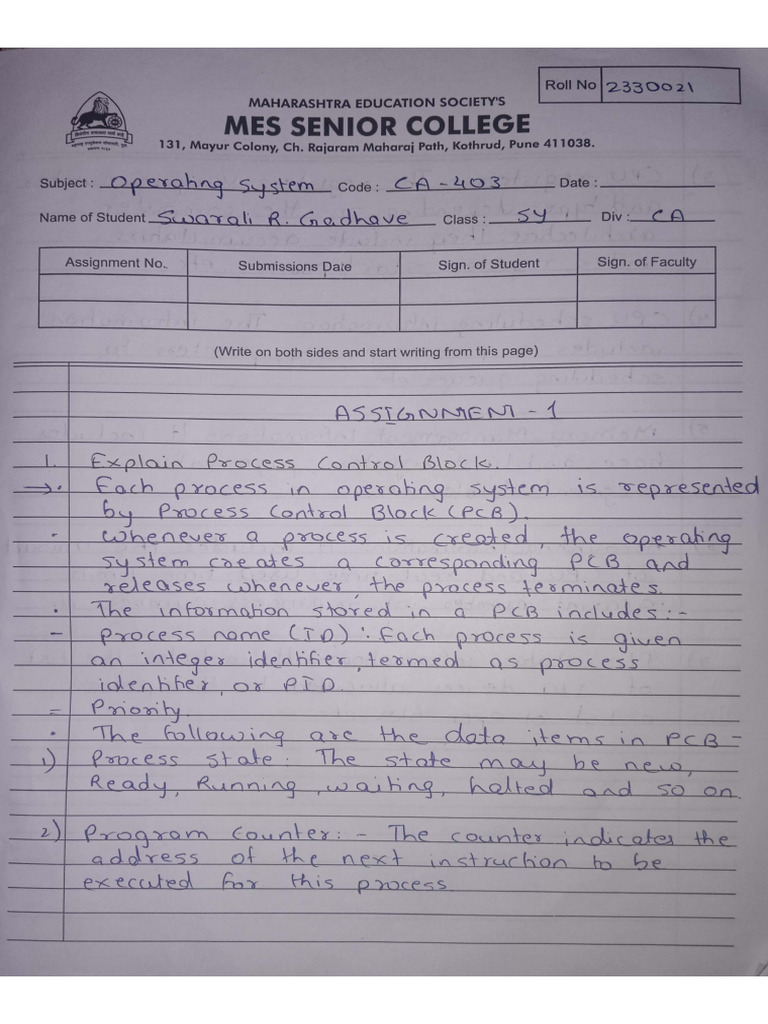 Roll No 2330021
MAHARASHTRA EDUCATION SOCIETY'S
MES SENIOR COLLEGE
131, Mayur Colony, Ch. Rajaram Maharaj Path, Kothrud, Pune 411038.
Subject : Operating System Code : CA-403 Date :
Name of Student Swarali R. Gadhave Class : SY Div : CA
Assignment No. Submissions Date Sign. of Student Sign. of Faculty
(Write on both sides and start writing from this page)
ASSIGNMENT - 1
1. Explain Process Control Block.
→ • Each process in operating system is represented
by Process Control Block (PCB).
• Whenever a process is created, the operating
system creates a corresponding PCB and
releases whenever, the process terminates.
• The information stored in a PCB includes :-
- Process name (ID) : Each process is given
an integer identifier, termed as process
identifier, or PID.
= Priority.
• The following are the data items in PCB -
1) Process State : The state may be new,
Ready, Running, waiting, halted and so on.
2) Program Counter : - The counter indicates the
address of the next instruction to be
executed for this process